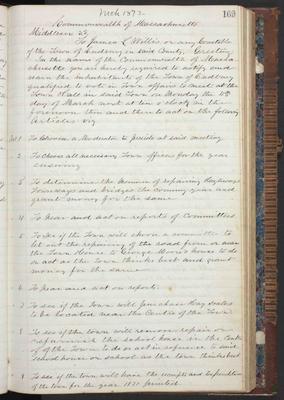 Mch 1872
169
Commonwealth of Massachusetts
Middlesex SS
To James L Willis or any Constable
of the Town of Sudbury in said County, Greeting
In the name of the Commonwealth of Massa
chusetts you are hereby required to notify and
warn the inhabitants of the Town of Sudbury
qualified to vote in Town affairs to meet at the
Town Hall in said Town on Monday the
day of March next at ten o'clock in the
forenoon then and there to act on the following
Articles viz
Art 1 To Choose a Moderator to preside at said meeting
2 To choose all necessary Town officers for the year
ensuing
3 To determine the manner of repairing Highways
Townways and bridges the Coming year and
grant money for the same
4 To hear and act on reports of Committees
5 To see if the Town will choose a committee to
let out the repairing of the road from or near
the Town House to George house to do
or act as the Town thinks best and grant
money for the same
6 To hear and act on reports
7 To see if the Town will purchase Hay scales
to be located near the Centre of the Town
8 To see if the town will remove repair or
the school house in the Centre
of the Town to do or act in reference to said
school house or school as the town thinks best
9 To see if the town will have the receipts and Expenditures
of the town for the year printed